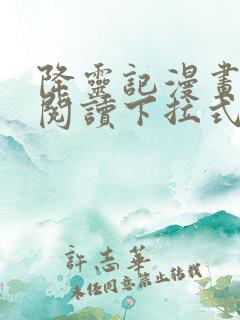 降靈記漫畫
閱讀下拉式
許志華
未任同意禁止轉載